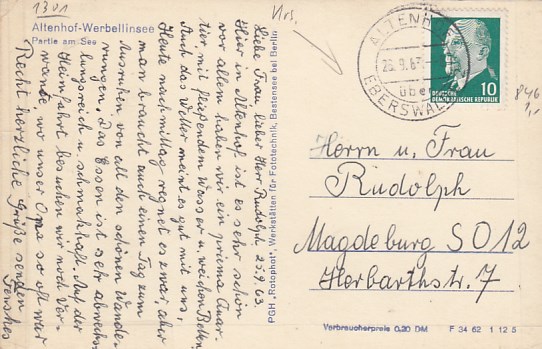 1301
Altenhof-Werbellinsee
Partie am See
Liebe Frau, lieber Herr Rudolph 25.9.63.
Hier in Altenhof ist es sehr schön
vor allem haben wir ein prima Quar-
tier mit fließendem Wasser u. weichen Betten.
Auch das Wetter meint es gut mit uns,
Heute nachmittag regnet es zwar, aber
man braucht auch einen Tag zum
Ausruhen, von all den schönen Wande-
rungen. Das Essen ist sehr abwechs-
lungsreich u. schmackhaft. Auf der
Heimfahrt besuchen wir noch Ver-
wandte, wo unser Oma so oft war
Recht herzliche Grüße senden
PGH „Rotophot“, Werkstätten für Fototechnik, Bestensee bei Berlin
ALTENHOF
über
EBERSWALDE
DEUTSCHE
DEMOKRATISCHE REPUBLIK
10
846
1,-
Herrn u. Frau
Rudolph
Magdeburg SO 12
Herbarthstr. 7
Verbraucherpreis 0,20 DM
F 34 62 1 12 5